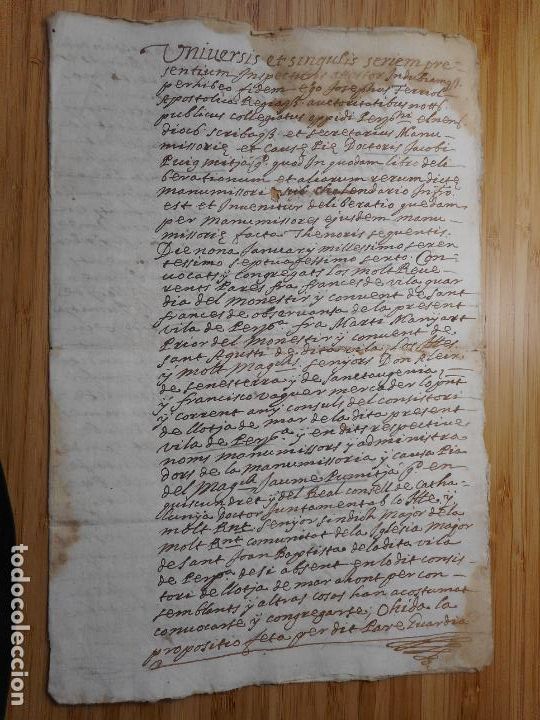 Universis et singulis seriem pre=
sentium Inspecturis
perhibeo fidem ego Josephus Ferriol
Apostolica Regiaq̃ auctoritatibus nots.
publicus collegiatus oppidi Perpñi
scribaq̃ et secretarius Manu
missoriæ et Causæ Piæ Doctoris Jacobi
Puigmitja qº quod In quodam libro deli
berationum et aliarum rerum dictę
manumissoriæ sub Chalendario Infro
est et Invenitur deliberatio quedam
per Manumissores ejusdem manu=
missoriæ facta Thenoris sequentis.
Die nona January millessimo
tessimo septuagessimo sexto. Con
vocats y congregats los molt Reve
rents Pares fra frances de vila guar
dia del monestir y convent de Sant
frances de observansa de la present
vila de Perpª. fra Marti Manyart
Prior del Monestir y convent de
sant Agusti de dita vila los Illes
y Molt Magchs senyors Don
de senesterra y de
y francisco vaguer mercader lo pnt
y corrent any consuls del consistori
de llotja de mar de la dita present
vila de Perpª y en dits respective
noms manumissors y administra
dors de la manumissoria y causa Pia
del Magch Jaume Pumitja qº en
quiscun dret y del Real consell de Catha
llunya doctor Juntament ab lo Ille y
molt Rnt senyor sindich Major de la
molt Rnt comunitat de la Iglesia Major
de sant Joan Baptista de la dita vila
de Perpª de si absent en lo dit consis
tori de llotja de mar ahont per con
semblants y altras cosas han acostumat
convocarse y congregarse; Ohida la
propositio feta per dit Pare Guardia
todocoleccion.net